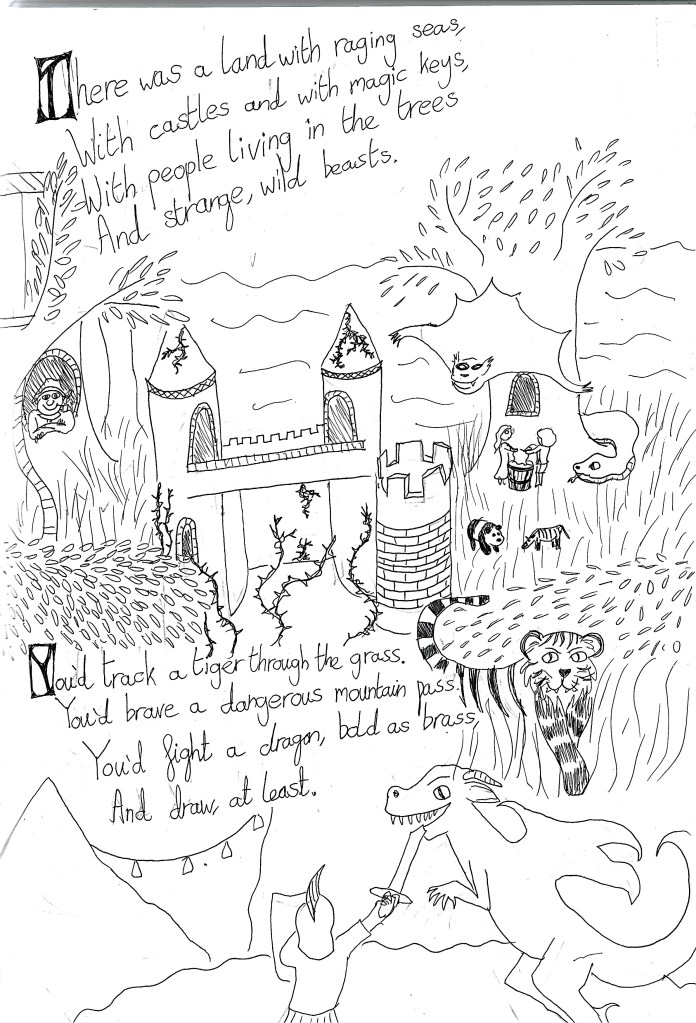 There was a land with raging seas,
With castles and with magic keys,
With people living in the trees
And strange, wild beasts.
You'd track a tiger through the grass.
You'd brave a dangerous mountain pass.
You'd fight a dragon, bold as brass,
And draw, at least.